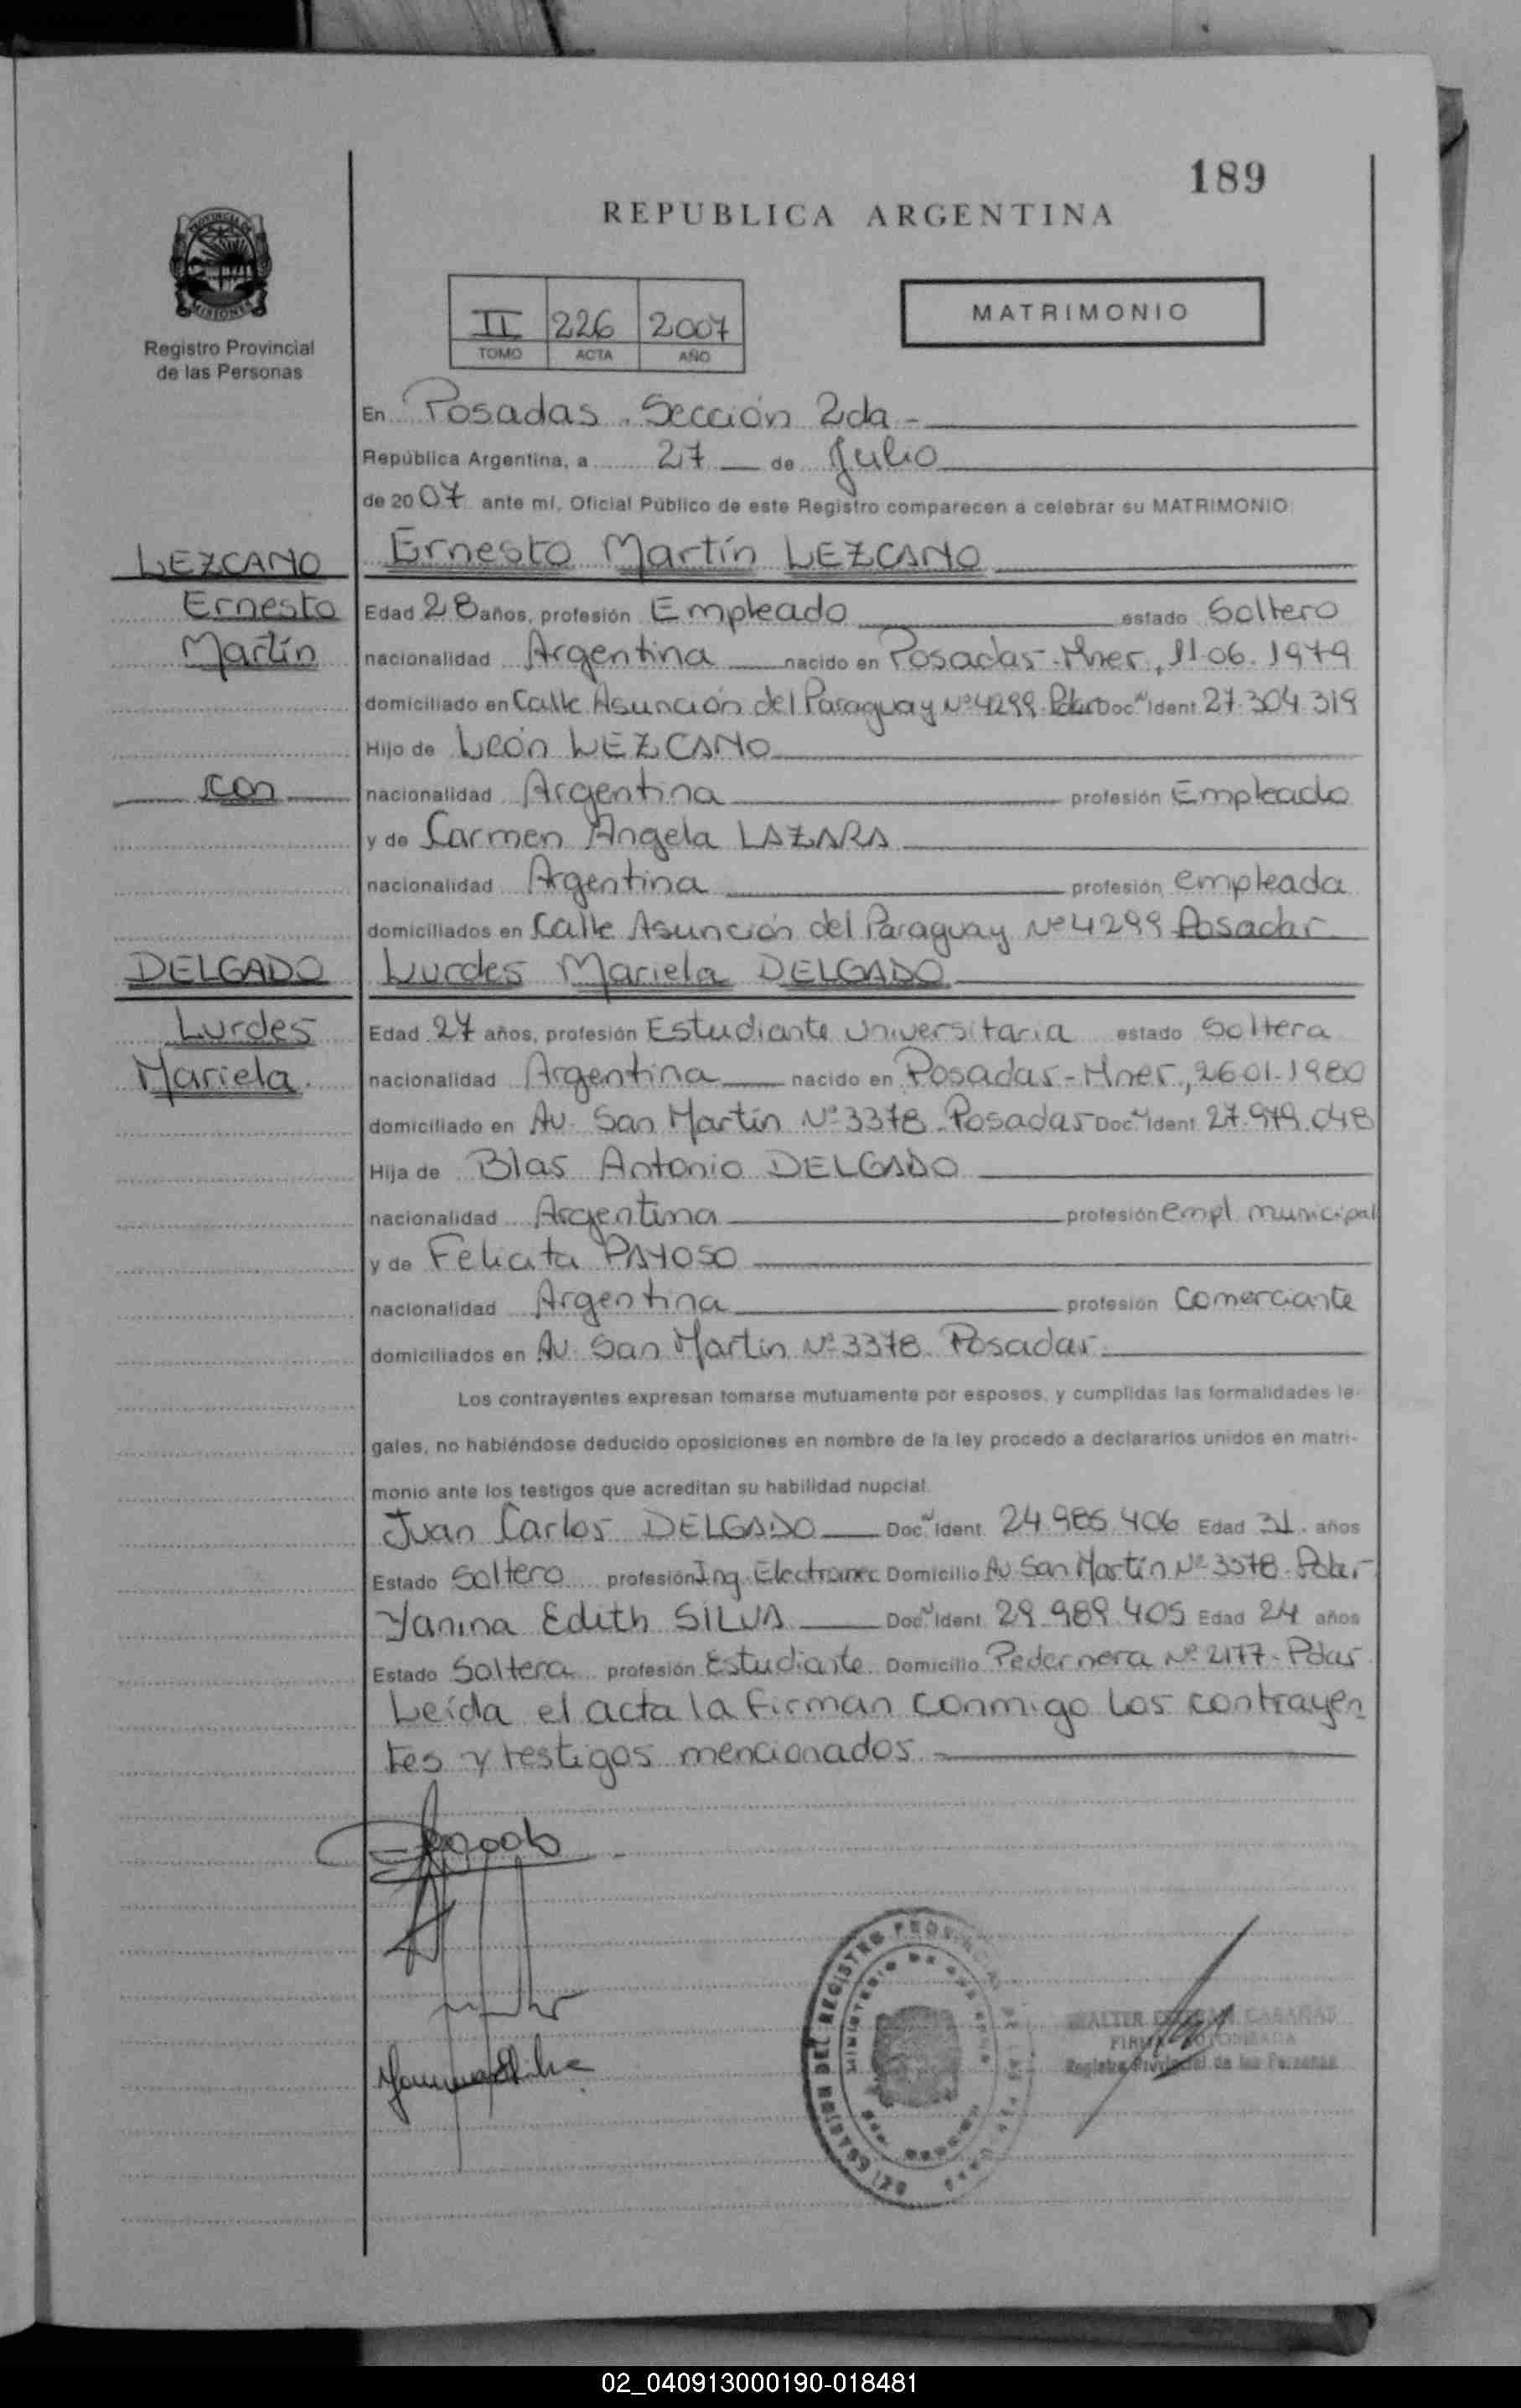 189
REPUBLICA ARGENTINA
PROVINCIA DE
MISIONES
Registro Provincial
de las Personas
II 226 2007
TOMO ACTA AÑO
MATRIMONIO
En Posadas. Sección 2da -
República Argentina, a 27 de Julio
de 2007 ante mí, Oficial Público de este Registro comparecen a celebrar su MATRIMONIO
LEZCANO Ernesto Martín LEZCANO
Ernesto Edad 28 años, profesión Empleado estado Soltero
Martín nacionalidad Argentina nacido en Posadas-Mnes, 11.06.1979
domiciliado en Calle Asunción del Paraguay Nº 4299 Pdas Doc. Ident. 27.304.319
Hijo de León LEZCANO
con nacionalidad Argentina profesión Empleado
y de Carmen Angela LAZARA
nacionalidad Argentina profesión empleada
domiciliados en Calle Asunción del Paraguay Nº 4299 Posadas
DELGADO Lurdes Mariela DELGADO
Lurdes Edad 27 años, profesión Estudiante Universitaria estado Soltera
Mariela. nacionalidad Argentina nacido en Posadas-Mnes, 26.01.1980
domiciliado en Av. San Martín Nº 3378. Posadas Doc. Ident. 27.979.048
Hija de Blas Antonio DELGADO
nacionalidad Argentina profesión empl. municipal
y de Felicita PAYOSO
nacionalidad Argentina profesión Comerciante
domiciliados en Av. San Martín Nº 3378. Posadas.
Los contrayentes expresan tomarse mutuamente por esposos, y cumplidas las formalidades le-
gales, no habiéndose deducido oposiciones en nombre de la ley procedo a declararlos unidos en matri-
monio ante los testigos que acreditan su habilidad nupcial
Juan Carlos DELGADO Doc. Ident. 24.985.406 Edad 31. años
Estado Soltero profesión Ing. Electromec Domicilio Av San Martín Nº 3378. Pdas-
Yanina Edith SILVA Doc. Ident. 29.989.405 Edad 24 años
Estado Soltera profesión Estudiante Domicilio Pedernera Nº 2177- Pdas
Leída el acta la firman conmigo los contrayen
tes y testigos mencionados
DEL REGISTRO PROVINCIAL
WALTER CABAÑAS
FIRMA AUTORIZADA
Registro Provincial de las Personas
02_040913000190-018481